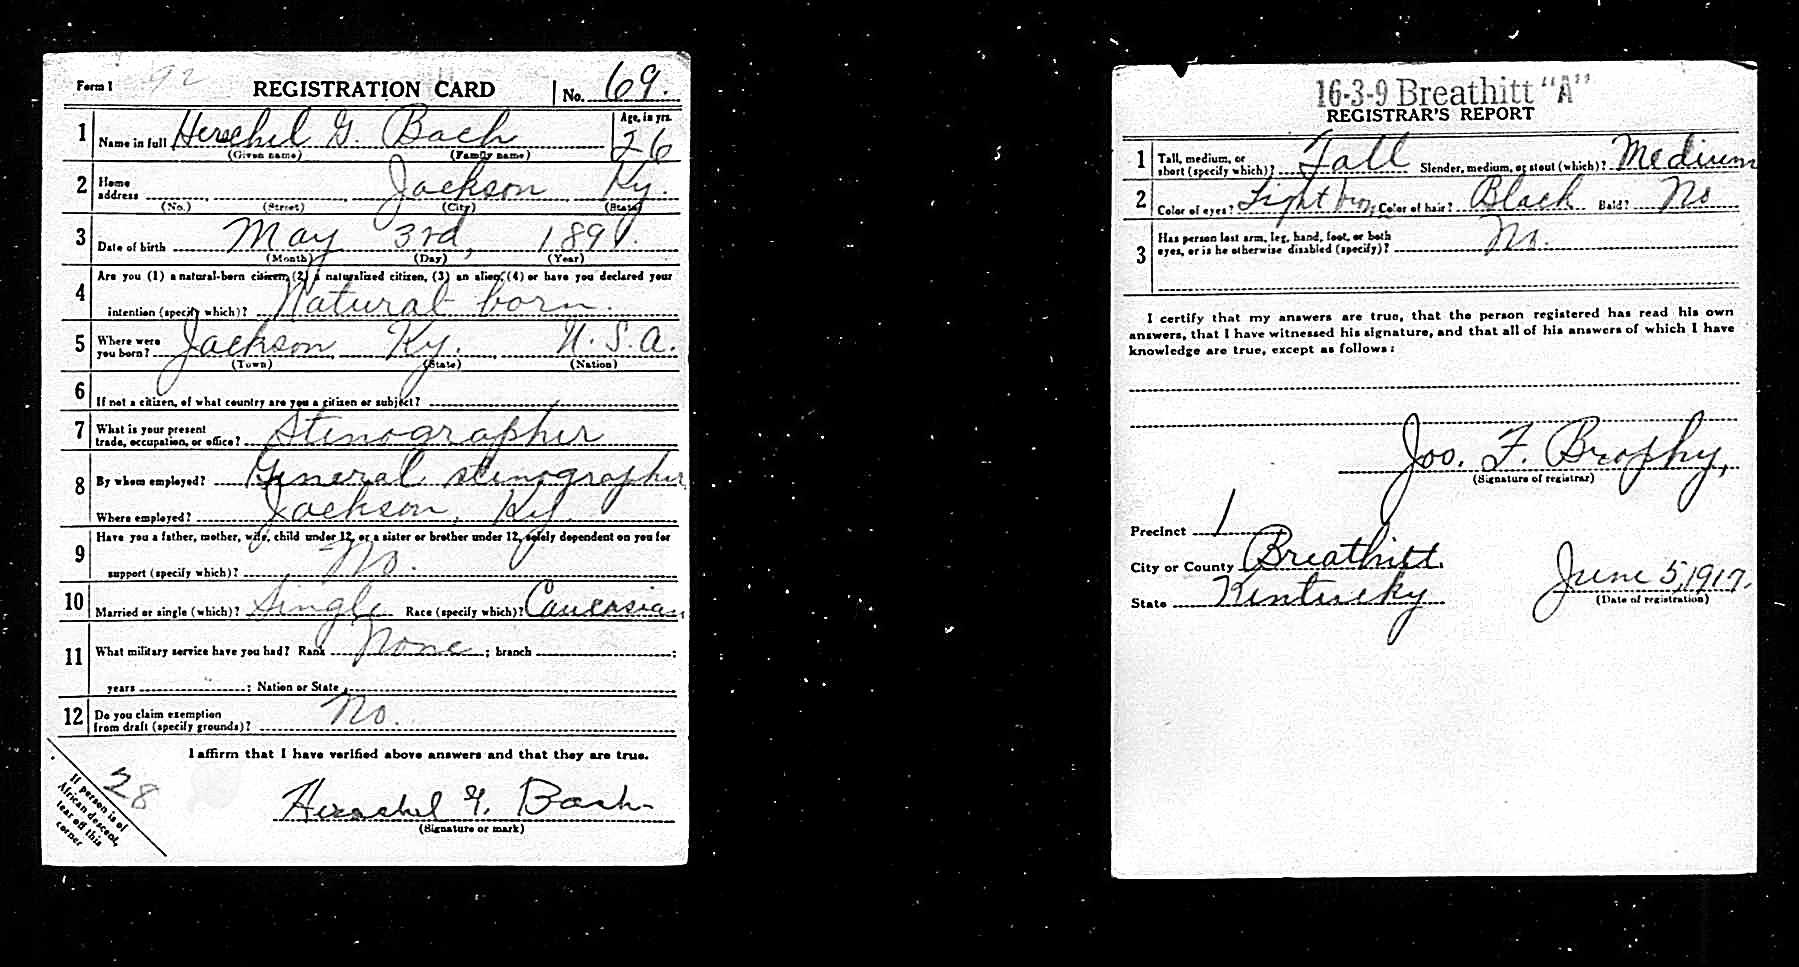 Form 1 92 REGISTRATION CARD No. 69.
1 Name in full Herschel G. Bach Age, in yrs. 26
(Given name) (Family name)
2 Home address Jackson Ky.
(No.) (Street) (City) (State)
3 Date of birth May 3rd, 1891.
(Month) (Day) (Year)
4 Are you (1) a natural-born citizen, (2) a naturalized citizen, (3) an alien, (4) or have you declared your
intention (specify which)? Natural born.
5 Where were you born? Jackson Ky. U.S.A.
(Town) (State) (Nation)
6 If not a citizen, of what country are you a citizen or subject?
7 What is your present trade, occupation, or office? Stenographer
8 By whom employed? General stenographer
Where employed? Jackson, Ky.
9 Have you a father, mother, wife, child under 12, or a sister or brother under 12, solely dependent on you for
support (specify which)? No.
10 Married or single (which)? Single Race (specify which)? Caucasian
11 What military service have you had? Rank None ; branch ;
years ; Nation or State
12 Do you claim exemption from draft (specify grounds)? No.
I affirm that I have verified above answers and that they are true.
28
Herschel G. Bach
(Signature or mark)
If person is of
African descent,
tear off this
corner
16-3-9 Breathitt "A"
REGISTRAR'S REPORT
1 Tall, medium, or short (specify which)? Tall Slender, medium, or stout (which)? Medium
2 Color of eyes? Light brn Color of hair? Black Bald? No
3 Has person lost arm, leg, hand, foot, or both
eyes, or is he otherwise disabled (specify)? No.
I certify that my answers are true, that the person registered has read his own
answers, that I have witnessed his signature, and that all of his answers of which I have
knowledge are true, except as follows:
Jos. F. Brophy,
(Signature of registrar)
Precinct 1
City or County Breathitt.
State Kentucky June 5, 1917.
(Date of registration)